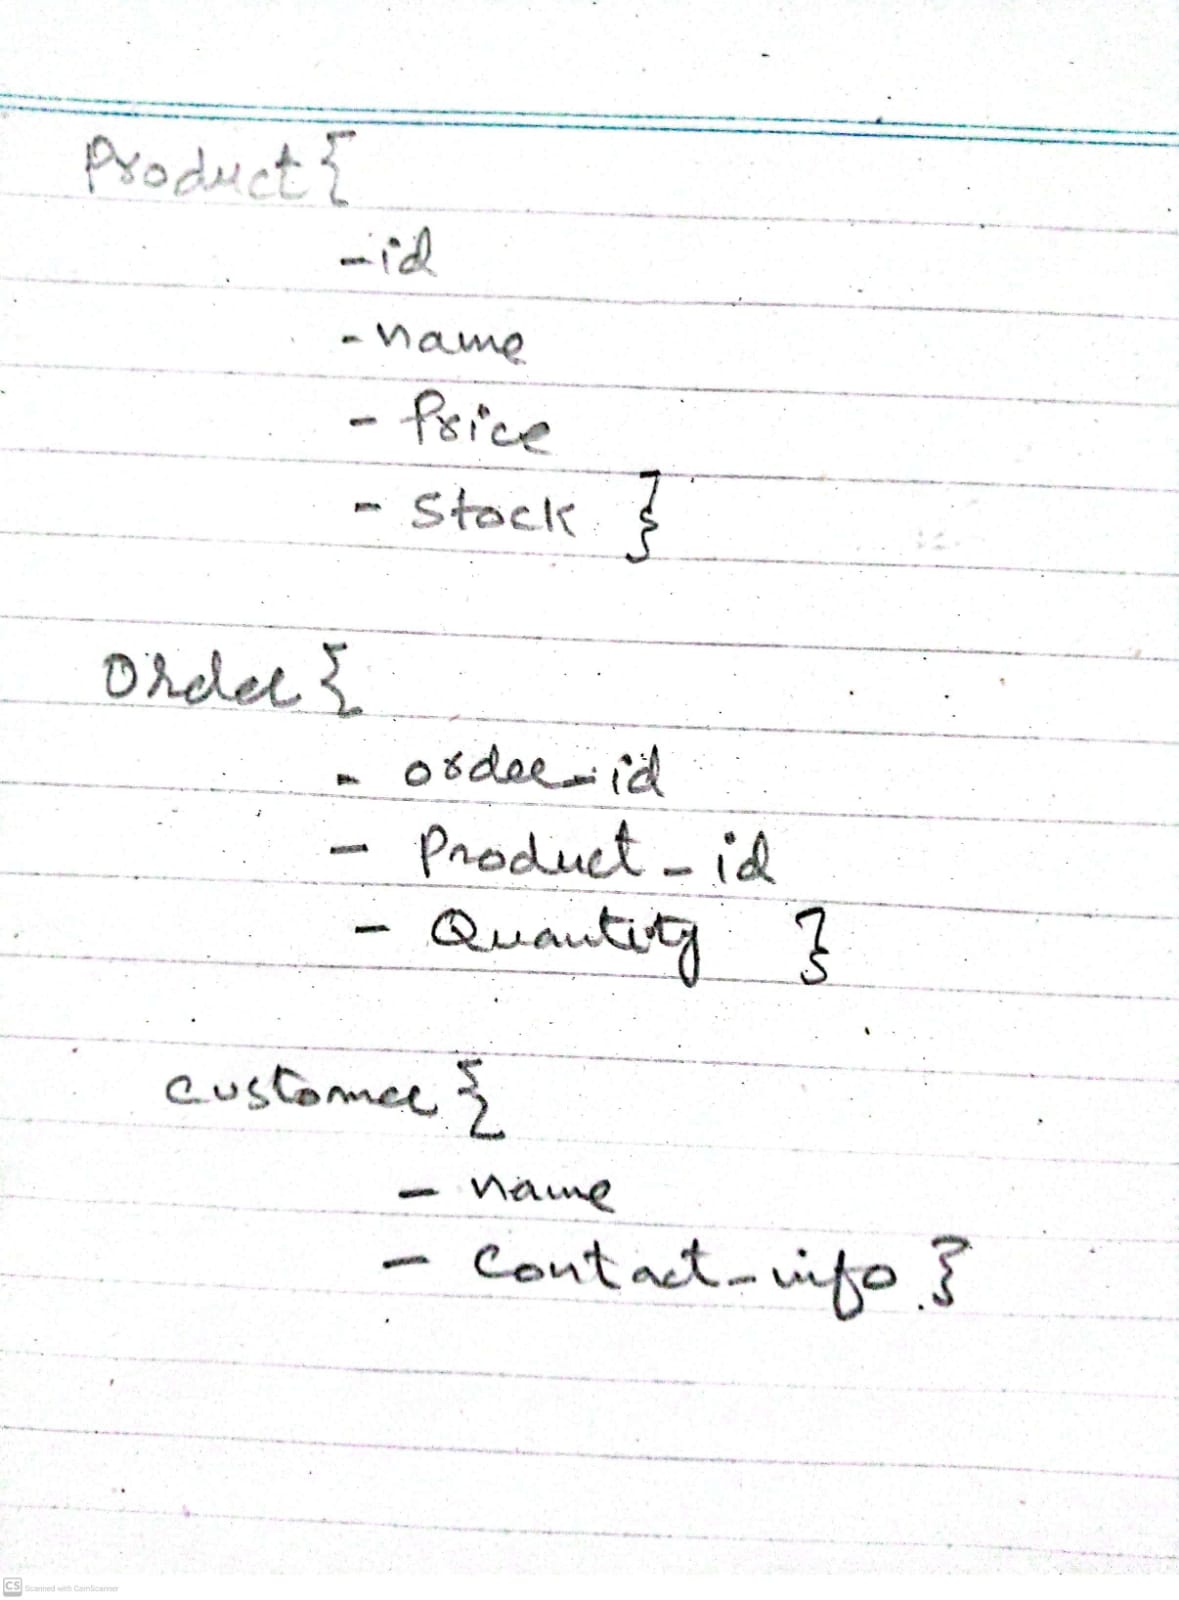 Product {
- id
- name
- Price
- Stock }
Order {
- order_id
- Product_id
- Quantity }
customer {
- name
- Contact_info }
CS Scanned with CamScanner